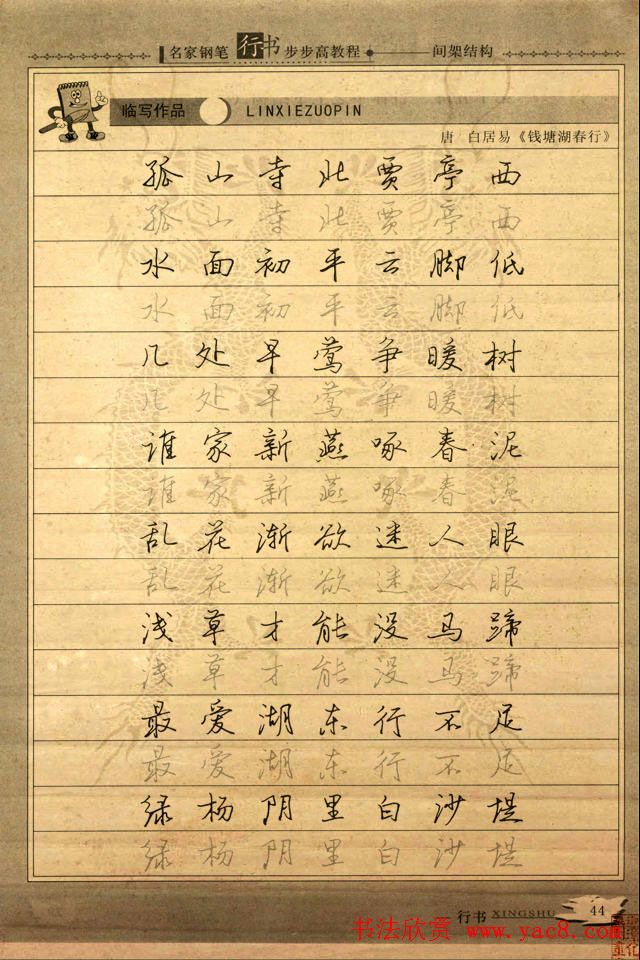 名家钢笔行书步步高教程 间架结构
临写作品 LINXIEZUOPIN
唐 白居易《钱塘湖春行》
孤山寺北贾亭西
孤山寺北贾亭西
水面初平云脚低
水面初平云脚低
几处早莺争暖树
几处早莺争暖树
谁家新燕啄春泥
谁家新燕啄春泥
乱花渐欲迷人眼
乱花渐欲迷人眼
浅草才能没马蹄
浅草才能没马蹄
最爱湖东行不足
最爱湖东行不足
绿杨阴里白沙堤
绿杨阴里白沙堤
行书 XINGSHU 44
书法欣赏 www.yac8.com